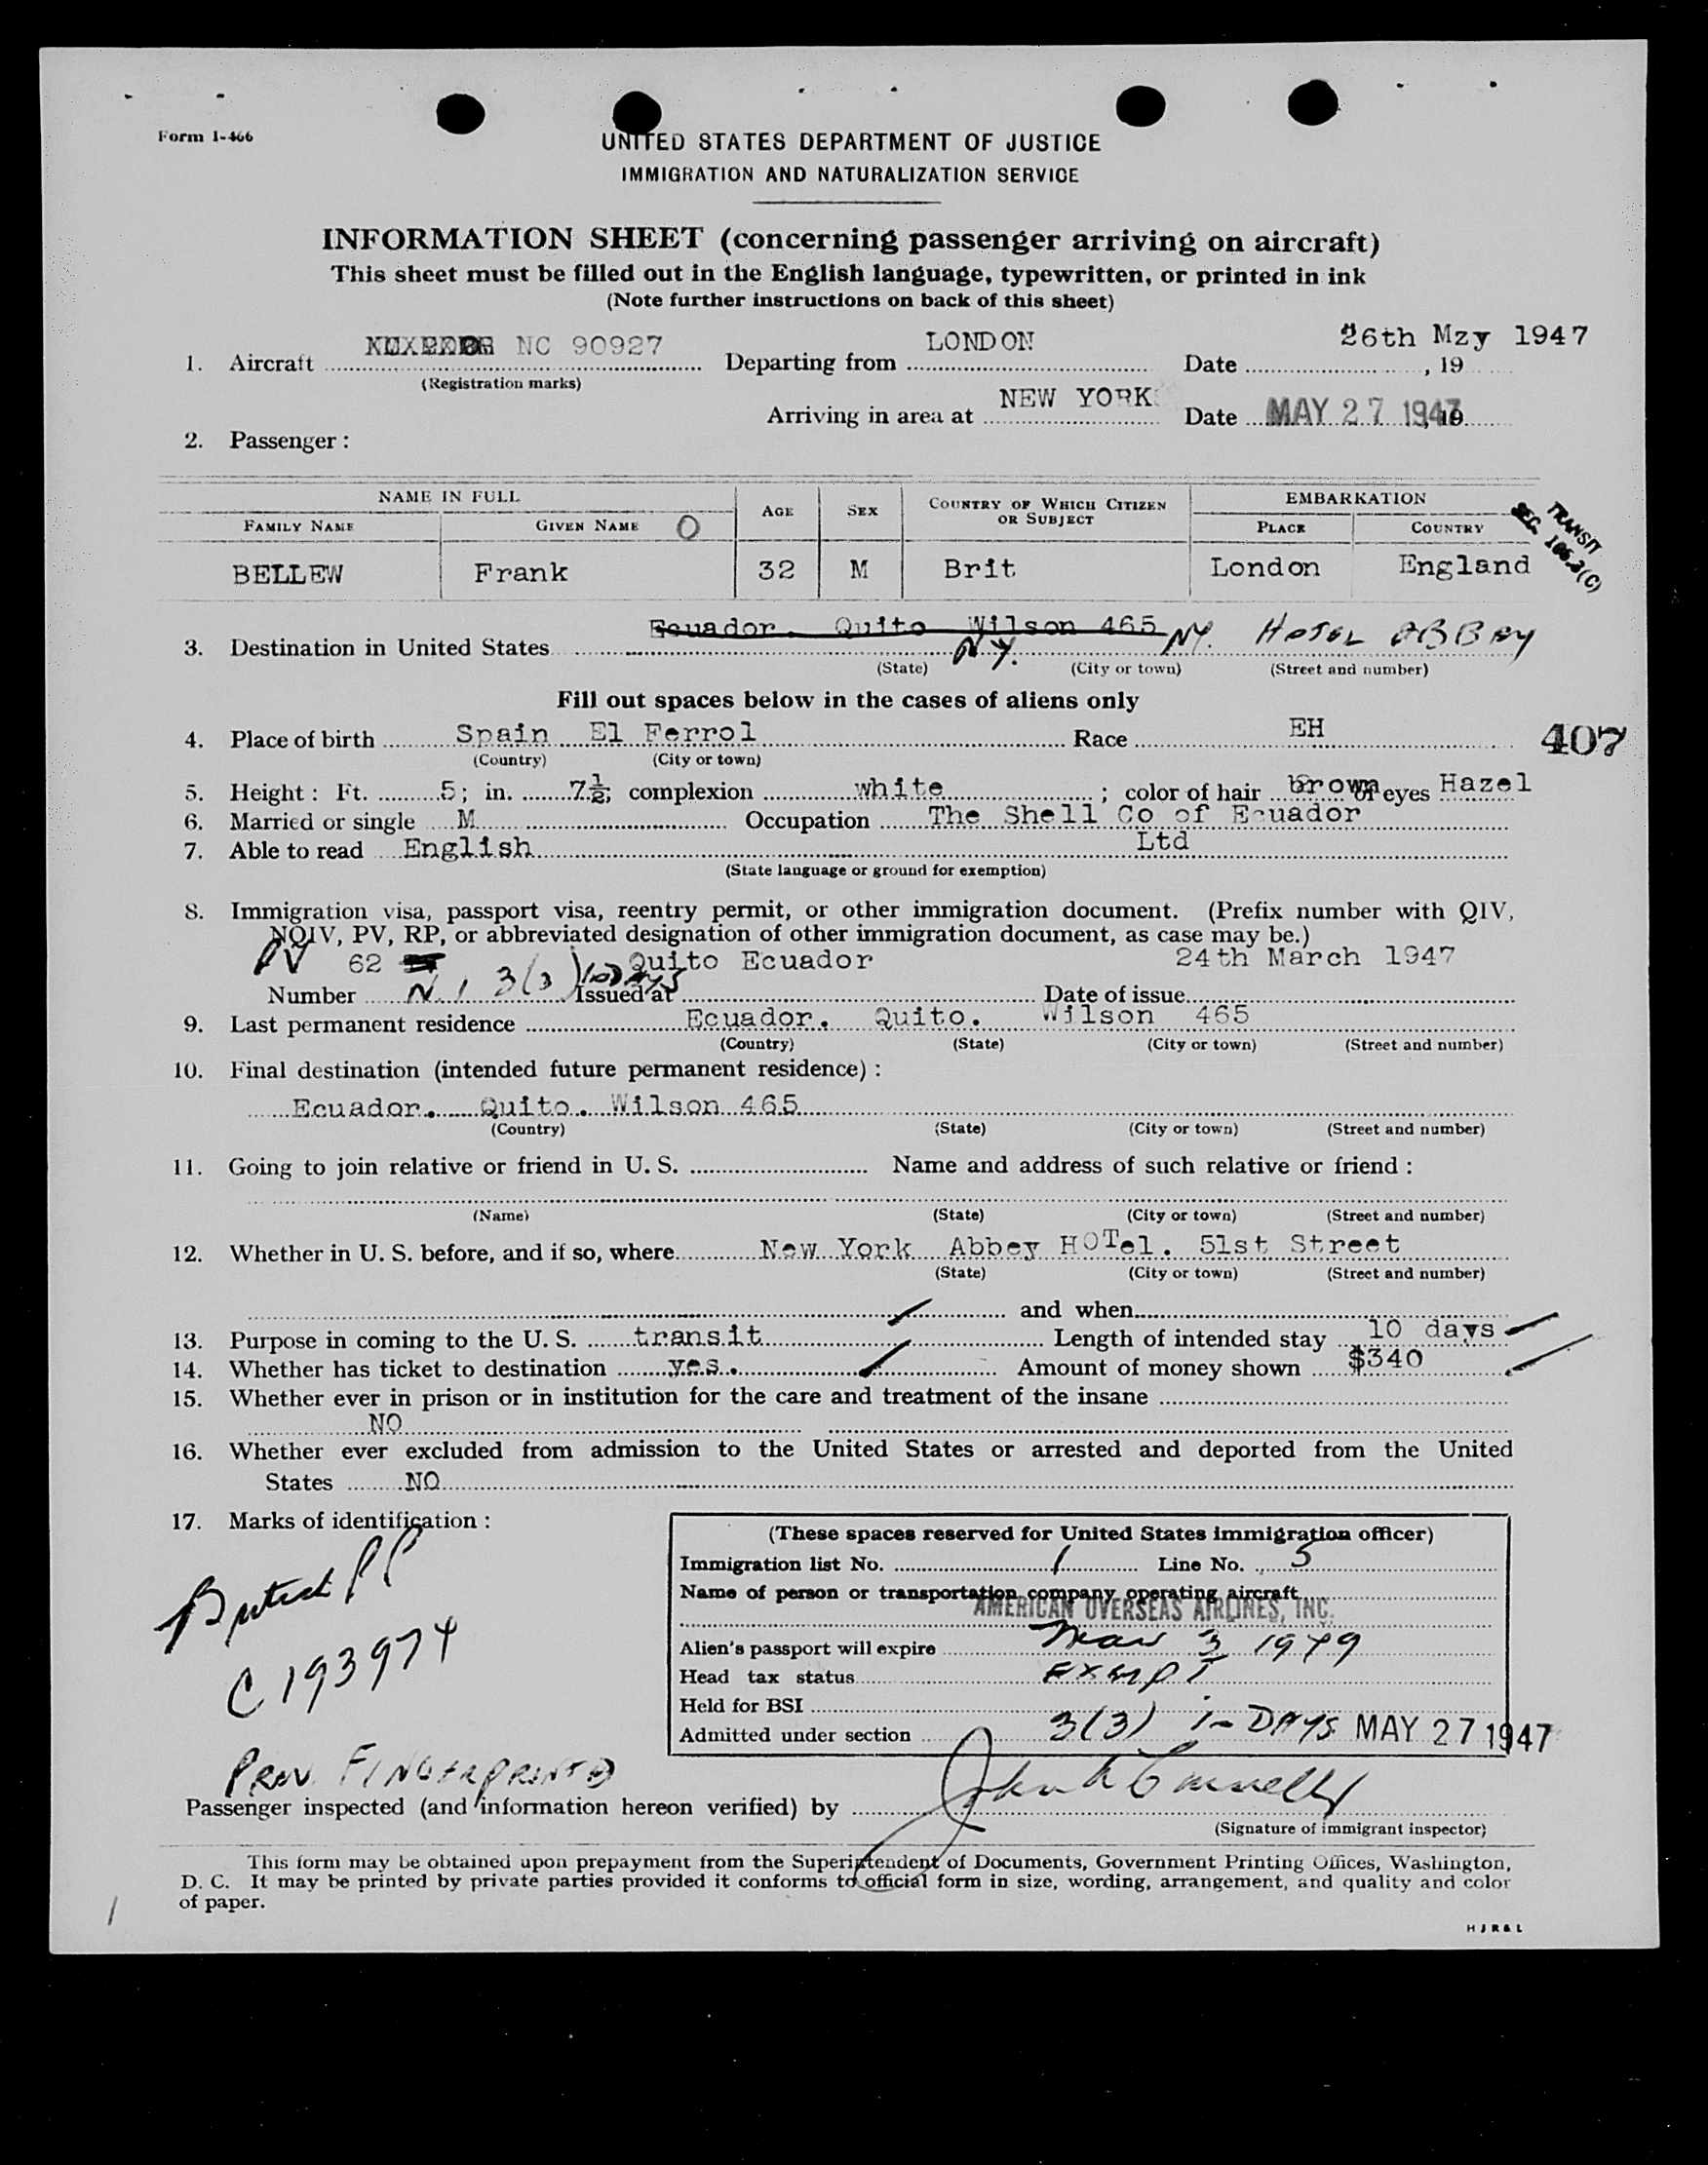 Form I-466
UNITED STATES DEPARTMENT OF JUSTICE
IMMIGRATION AND NATURALIZATION SERVICE
INFORMATION SHEET (concerning passenger arriving on aircraft)
This sheet must be filled out in the English language, typewritten, or printed in ink
(Note further instructions on back of this sheet)
1. Aircraft NC 90927 Departing from LONDON Date 26th Mzy 1947, 19
(Registration marks)
Arriving in area at NEW YORK Date MAY 27 1947
2. Passenger:
NAME IN FULL AGE SEX COUNTRY OF WHICH CITIZEN OR SUBJECT EMBARKATION
FAMILY NAME GIVEN NAME PLACE COUNTRY
TRANSIT
SEC. 106.3(C)
BELLEW Frank 32 M Brit London England
3. Destination in United States Ecuador. Quito Wilson 465 NY. NY. HOTEL ABBEY
(State) (City or town) (Street and number)
Fill out spaces below in the cases of aliens only
4. Place of birth Spain El Ferrol Race EH
407
(Country) (City or town)
5. Height: Ft. 5; in. 7½; complexion white; color of hair brown of eyes Hazel
6. Married or single M Occupation The Shell Co of Ecuador
7. Able to read English Ltd
(State language or ground for exemption)
8. Immigration visa, passport visa, reentry permit, or other immigration document. (Prefix number with QIV,
NQIV, PV, RP, or abbreviated designation of other immigration document, as case may be.)
PV 62 Quito Ecuador 24th March 1947
Number 3(3) Issued at Date of issue
9. Last permanent residence Ecuador. Quito. Wilson 465
(Country) (State) (City or town) (Street and number)
10. Final destination (intended future permanent residence):
Ecuador. Quito. Wilson 465
(Country) (State) (City or town) (Street and number)
11. Going to join relative or friend in U. S. Name and address of such relative or friend:
(Name) (State) (City or town) (Street and number)
12. Whether in U. S. before, and if so, where New York Abbey HOTel. 51st Street
(State) (City or town) (Street and number)
and when
13. Purpose in coming to the U. S. transit Length of intended stay 10 days
14. Whether has ticket to destination yes. Amount of money shown $340
15. Whether ever in prison or in institution for the care and treatment of the insane
NO
16. Whether ever excluded from admission to the United States or arrested and deported from the United
States NO
17. Marks of identification:
British PP
C 193974
(These spaces reserved for United States immigration officer)
Immigration list No. 1 Line No. 5
Name of person or transportation company operating aircraft
AMERICAN OVERSEAS AIRLINES, INC.
Alien's passport will expire Mar 3 1949
Head tax status EXEMPT
Held for BSI
Admitted under section 3(3) 10 DAYS MAY 27 1947
PREV. FINGERPRINTED
Passenger inspected (and information hereon verified) by
(Signature of immigrant inspector)
This form may be obtained upon prepayment from the Superintendent of Documents, Government Printing Offices, Washington,
D. C. It may be printed by private parties provided it conforms to official form in size, wording, arrangement, and quality and color
of paper.
H J R & L